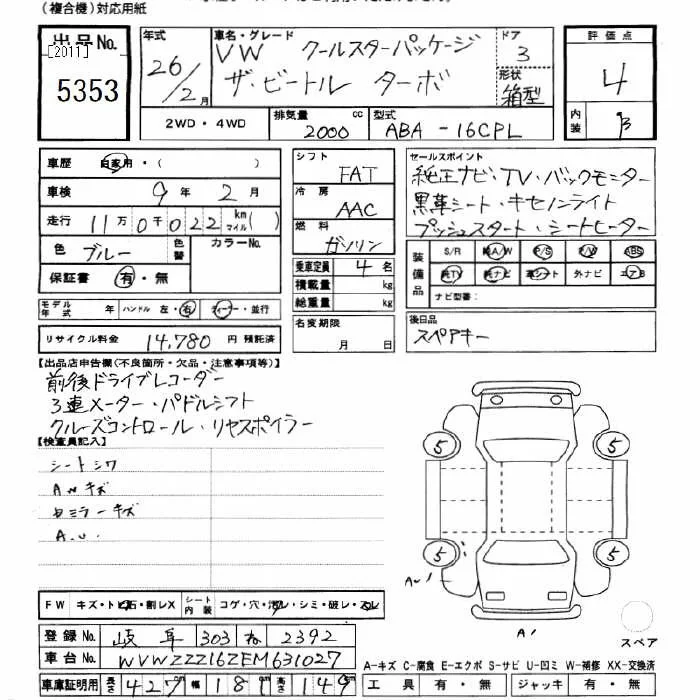 (複合機)対応用紙
出品No.
[2011]
5353
年式
26/2月
車名・グレード
VW クールスターパッケージ
ザ・ビートル ターボ
ドア
3
形状
箱型
評価点
4
内装
B
2WD・4WD
排気量
2000 cc
型式
ABA-16CPL
車歴
自家用・( )
車検
9年2月
走行
11万0千022 km マイル( )
色
ブルー
色替
カラーNo.
保証書
有・無
モデル年式 年
ハンドル 左・右
ディーラー・並行
リサイクル料金 14,780 円 預託済
シフト
FAT
冷房
AAC
燃料
ガソリン
乗車定員 4 名
積載量 kg
総重量 kg
名変期限
月 日
セールスポイント
純正ナビ・TV・バックモニター
黒革シート・キセノンライト
プッシュスタート・シートヒーター
装備品
S/R 純A/W P/S P/W ABS
純TV 純ナビ 革シート 外ナビ エアB
ナビ型番:
後日品
スペアキー
【出品店申告欄(不良箇所・欠品・注意事項等)】
前後ドライブレコーダー
3連メーター・パドルシフト
クルーズコントロール・リヤスポイラー
【検査員記入】
シートシワ
AWキズ
ミラーキズ
A.U.
5
5
5
5
AU1
A1
スペア
FW キズ・トビ石・割レX
シート内装
コゲ・穴・汚レ・シミ・破レ・スレ
登録No. 岐阜 303 ね 2392
車台No. WVWZZZ16ZEM631027
車庫証明用 長さ 427 cm 幅 181 cm 高さ 149 cm
A-キズ C-腐食 E-エクボ S-サビ U-凹ミ W-補修 XX-交換済
工具 有・無
ジャッキ 有・無